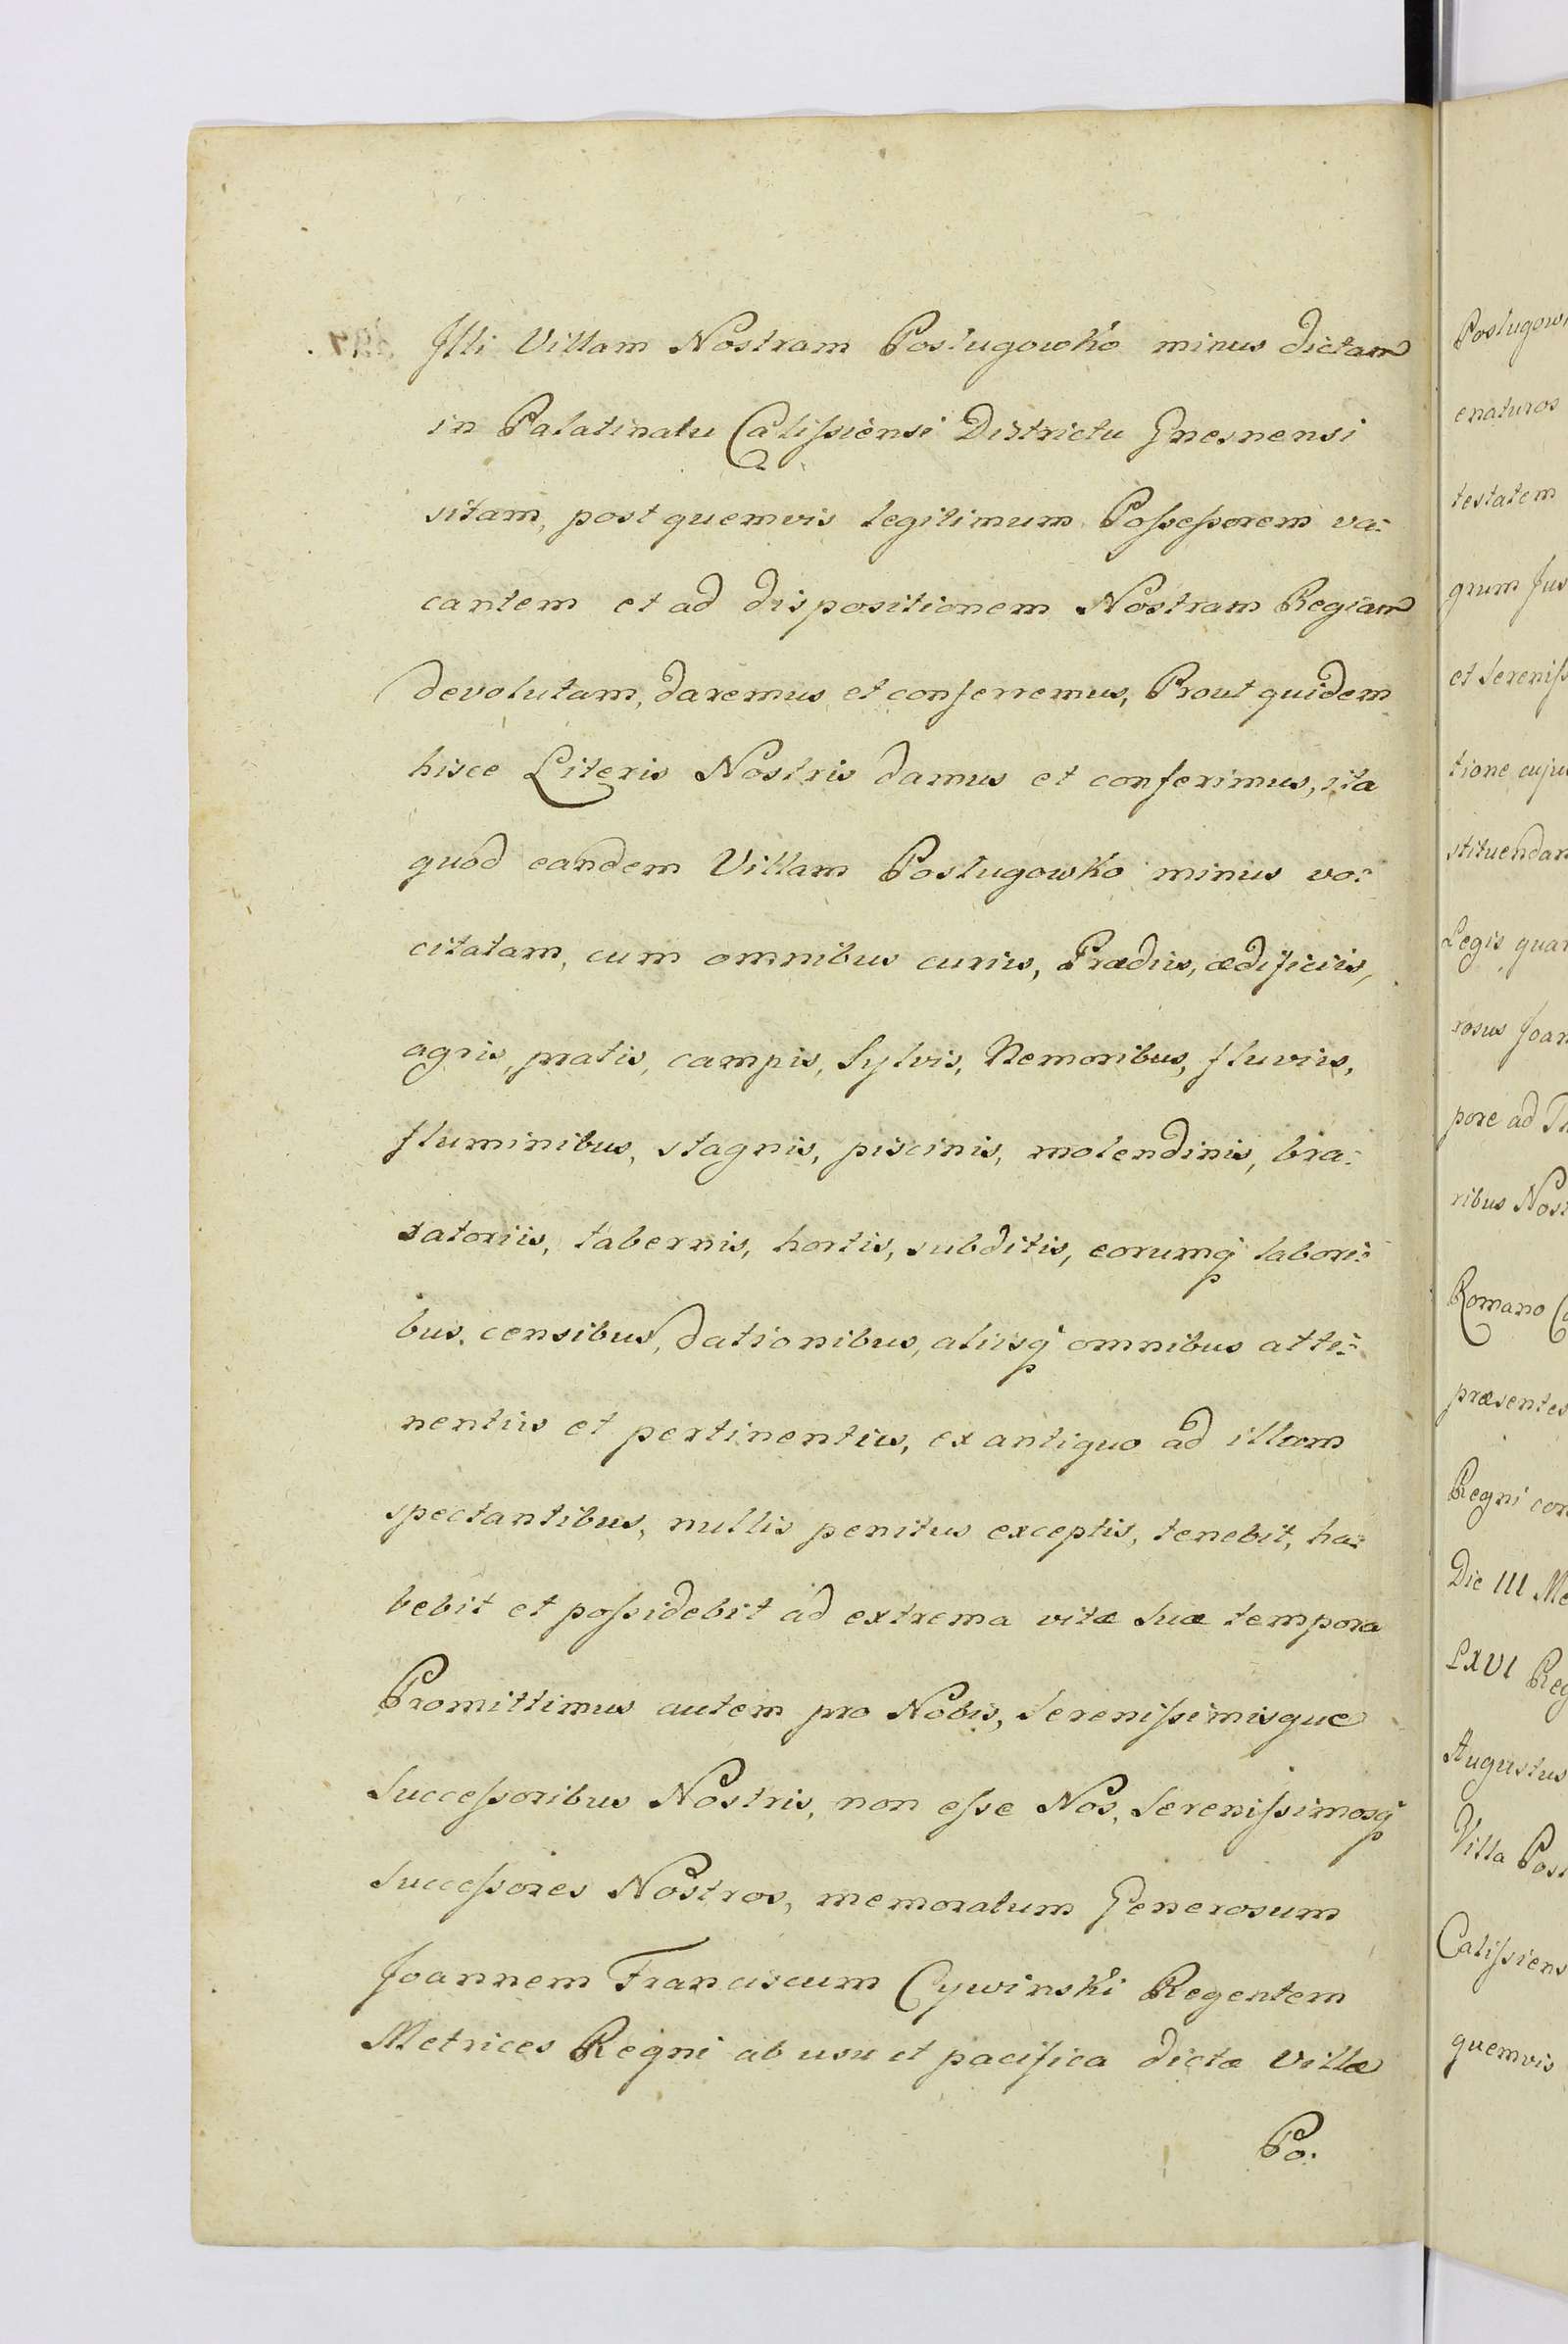 Illi Villam Nostram Posługowko minus dictam
in Palatinatu Calissiensi Districtu Gnesnensi
sitam, post quemvis legitimum Possessorem va:
cantem et ad dispositionem Nostram Regiam
devolutam, daremus et conferremus, Prout quidem
hisce Literis Nostris damus et conferimus, ita
quod eandem Villam Posługowko minus vo:
citatam, cum omnibus curiis, Prædiis, ædificiis,
agris, pratis, campis, Sylvis, Nemoribus, fluviis,
fluminibus, stagnis, piscinis, molendinis, bra:
xatoriis, tabernis, hortis, subditis, eorumq́ labori:
bus, censibus, dationibus, aliisq́ omnibus atti:
nentiis et pertinentiis, ex antiquo ad illam
spectantibus, nullis penitus exceptis, tenebit, ha:
bebit et possidebit ad extrema vitæ suæ tempora
Promittimus autem pro Nobis, Serenissimisque
Successoribus Nostris, non esse Nos, Serenissimosq́
Successores Nostros, memoratum Generosum
Joannem Franciscum Cywinski Regentem
Metrices Regni ab usu et pacifica dictæ Villæ
Po.
Posługow
enaturos
testatem
grum Jus
et Sereniss
tione cuju
stituendam
Legis quar
rosus Joan
pore ad
ribus Nost
Romano
præsentes
Regni con
Die III Me
LXVI Reg
Augustus
Villa Posł
Calissiens
quemvis